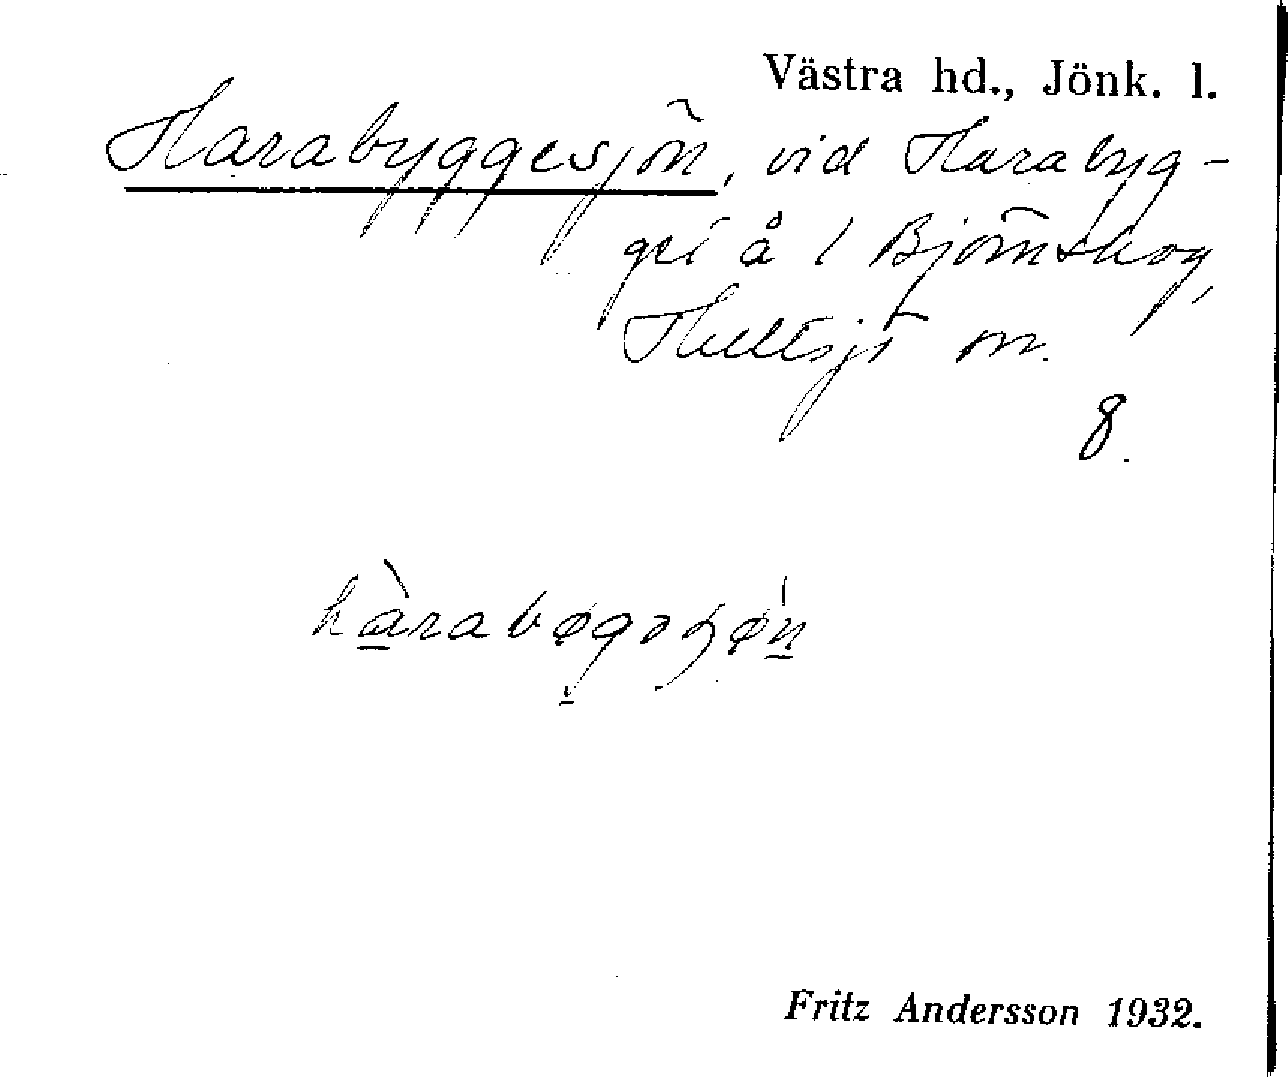 Västra hd., Jönk. l.
Harabyggesjön, vid Harabyg-
ge å i Björnskog,
Hultsjö sn.
8.
hàrabøgəʃǿn
Fritz Andersson 1932.